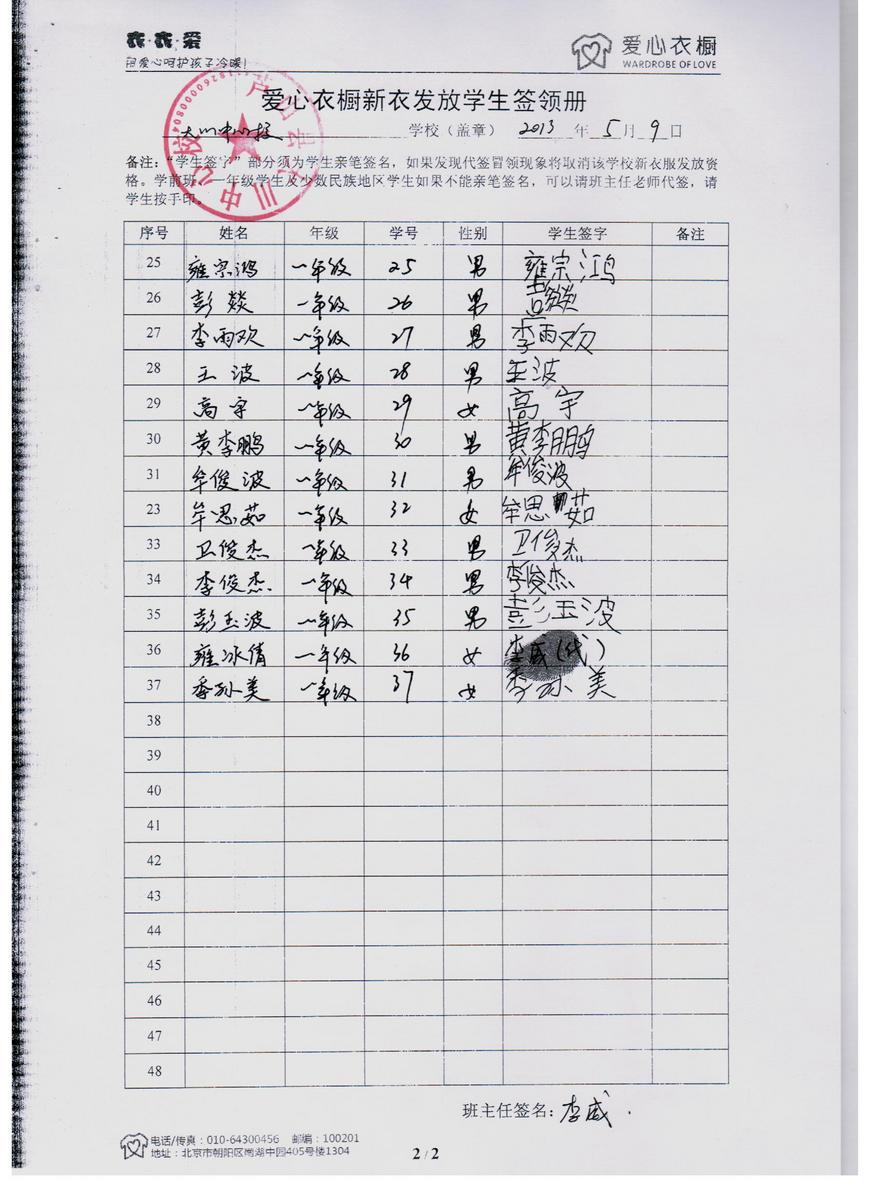 衣·衣·爱
用爱心呵护孩子冷暖!
爱心衣橱
WARDROBE OF LOVE
爱心衣橱新衣发放学生签领册
大川中心校 学校（盖章） 2013 年 5 月 9 日
备注：“学生签字”部分须为学生亲笔签名，如果发现代签冒领现象将取消该学校新衣服发放资
格。学前班、一年级学生及少数民族地区学生如果不能亲笔签名，可以请班主任老师代签，请
学生按手印。
序号 姓名 年级 学号 性别 学生签字 备注
25 雍宗鸿 一年级 25 男 雍宗鸿
26 彭燚 一年级 26 男
27 李雨欢 一年级 27 男 李雨欢
28 王波 一年级 28 男 王波
29 高宇 一年级 29 女 高宇
30 黄李鹏 一年级 30 男 黄李鹏
31 牟俊波 一年级 31 男 牟俊波
23 牟思茹 一年级 32 女 牟思茹
33 卫俊杰 一年级 33 男 卫俊杰
34 李俊杰 一年级 34 男 李俊杰
35 彭玉波 一年级 35 男 彭玉波
36 雍冰倩 一年级 36 女 李威(代)
37 季孙美 一年级 37 女 季孙美
38
39
40
41
42
43
44
45
46
47
48
班主任签名: 李威
电话/传真：010-64300456 邮编：100201
地址：北京市朝阳区南湖中园405号楼1304
2 / 2